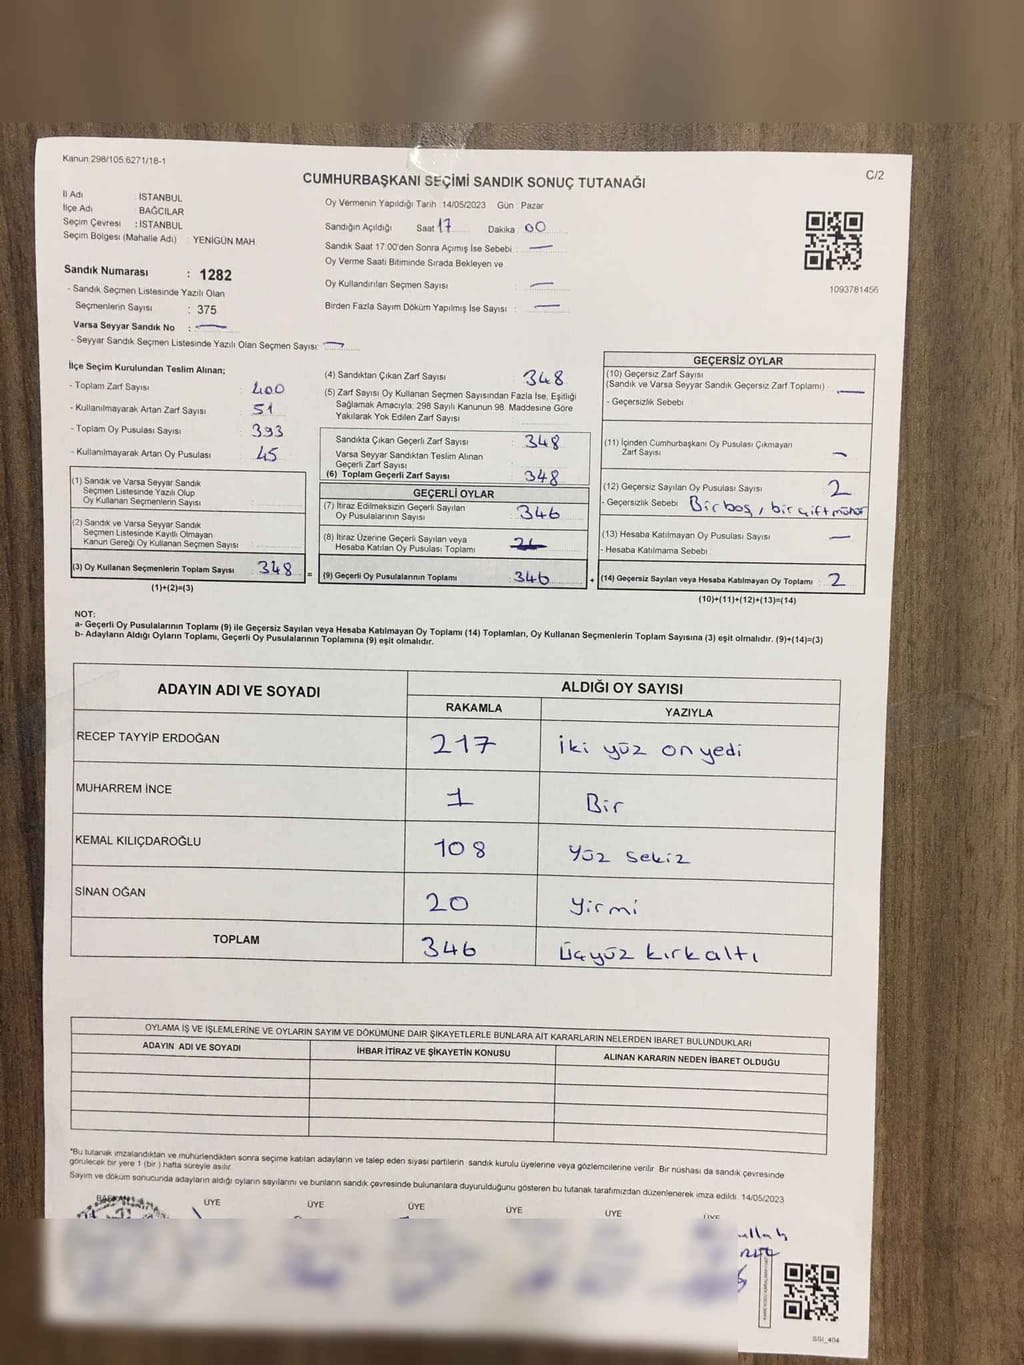 Kanun 298/105 6271/18-1
C/2
CUMHURBAŞKANI SEÇİMİ SANDIK SONUÇ TUTANAĞI
İl Adı : İSTANBUL
İlçe Adı : BAĞCILAR
Seçim Çevresi : İSTANBUL
Seçim Bölgesi (Mahalle Adı) : YENİGÜN MAH
Sandık Numarası : 1282
- Sandık Seçmen Listesinde Yazılı Olan
Seçmenlerin Sayısı : 375
Varsa Seyyar Sandık No : —
- Seyyar Sandık Seçmen Listesinde Yazılı Olan Seçmen Sayısı: —
Oy Vermenin Yapıldığı Tarih 14/05/2023 Gün : Pazar
Sandığın Açıldığı Saat 17 Dakika : 00
Sandık Saat 17:00'den Sonra Açımış İse Sebebi : —
Oy Verme Saati Bitiminde Sırada Bekleyen ve
Oy Kullandırılan Seçmen Sayısı : —
Birden Fazla Sayım Döküm Yapılmış İse Sayısı : —
1093781456
İlçe Seçim Kurulundan Teslim Alınan;
- Toplam Zarf Sayısı : 400
- Kullanılmayarak Artan Zarf Sayısı : 51
- Toplam Oy Pusulası Sayısı : 393
- Kullanılmayarak Artan Oy Pusulası : 45
(1) Sandık ve Varsa Seyyar Sandık
Seçmen Listesinde Yazılı Olup
Oy Kullanan Seçmenlerin Sayısı :
(2) Sandık ve Varsa Seyyar Sandık
Seçmen Listesinde Kayıtlı Olmayan
Kanun Gereği Oy Kullanan Seçmen Sayısı :
(3) Oy Kullanan Seçmenlerin Toplam Sayısı : 348
(1)+(2)=(3)
(4) Sandıktan Çıkan Zarf Sayısı : 348
(5) Zarf Sayısı Oy Kullanan Seçmen Sayısından Fazla İse, Eşitliği
Sağlamak Amacıyla, 298 Sayılı Kanunun 98. Maddesine Göre
Yakılarak Yok Edilen Zarf Sayısı :
Sandıkta Çıkan Geçerli Zarf Sayısı : 348
Varsa Seyyar Sandıktan Teslim Alınan
Geçerli Zarf Sayısı
(6) Toplam Geçerli Zarf Sayısı : 348
GEÇERLİ OYLAR
(7) İtiraz Edilmeksizin Geçerli Sayılan
Oy Pusulalarının Sayısı : 346
(8) İtiraz Üzerine Geçerli Sayılan veya
Hesaba Katılan Oy Pusulası Toplamı :
= (9) Geçerli Oy Pusulalarının Toplamı : 346
GEÇERSİZ OYLAR
(10) Geçersiz Zarf Sayısı
(Sandık ve Varsa Seyyar Sandık Geçersiz Zarf Toplamı) : —
- Geçersizlik Sebebi :
(11) İçinden Cumhurbaşkanı Oy Pusulası Çıkmayan
Zarf Sayısı : —
(12) Geçersiz Sayılan Oy Pusulası Sayısı : 2
- Geçersizlik Sebebi : Bir boş, bir çift mühür
(13) Hesaba Katılmayan Oy Pusulası Sayısı : —
- Hesaba Katılmama Sebebi :
+ (14) Geçersiz Sayılan veya Hesaba Katılmayan Oy Toplamı : 2
(10)+(11)+(12)+(13)=(14)
NOT:
a- Geçerli Oy Pusulalarının Toplamı (9) ile Geçersiz Sayılan veya Hesaba Katılmayan Oy Toplamı (14) Toplamları, Oy Kullanan Seçmenlerin Toplam Sayısına (3) eşit olmalıdır. (9)+(14)=(3)
b- Adayların Aldığı Oyların Toplamı, Geçerli Oy Pusulalarının Toplamına (9) eşit olmalıdır.
ADAYIN ADI VE SOYADI ALDIĞI OY SAYISI
RAKAMLA YAZIYLA
RECEP TAYYİP ERDOĞAN 217 İki yüz on yedi
MUHARREM İNCE 1 Bir
KEMAL KILIÇDAROĞLU 108 Yüz sekiz
SİNAN OĞAN 20 Yirmi
TOPLAM 346 Üçyüz kırkaltı
OYLAMA İŞ VE İŞLEMLERİNE VE OYLARIN SAYIM VE DÖKÜMÜNE DAİR ŞİKAYETLERLE BUNLARA AİT KARARLARIN NELERDEN İBARET BULUNDUKLARI
ADAYIN ADI VE SOYADI İHBAR İTİRAZ VE ŞİKAYETİN KONUSU ALINAN KARARIN NEDEN İBARET OLDUĞU
*Bu tutanak imzalandıktan ve mühürlendikten sonra seçime katılan adayların ve talep eden siyasi partilerin sandık kurulu üyelerine veya gözlemcilerine verilir. Bir nüshası da sandık çevresinde
görülecek bir yere 1 (bir ) hafta süreyle asılır.
Sayım ve döküm sonucunda adayların aldığı oyların sayılarını ve bunların sandık çevresinde bulunanlara duyurulduğunu gösteren bu tutanak tarafımızdan düzenlenerek imza edildi. 14/05/2023
BAŞKAN ÜYE ÜYE ÜYE ÜYE ÜYE ÜYE
SSI_404